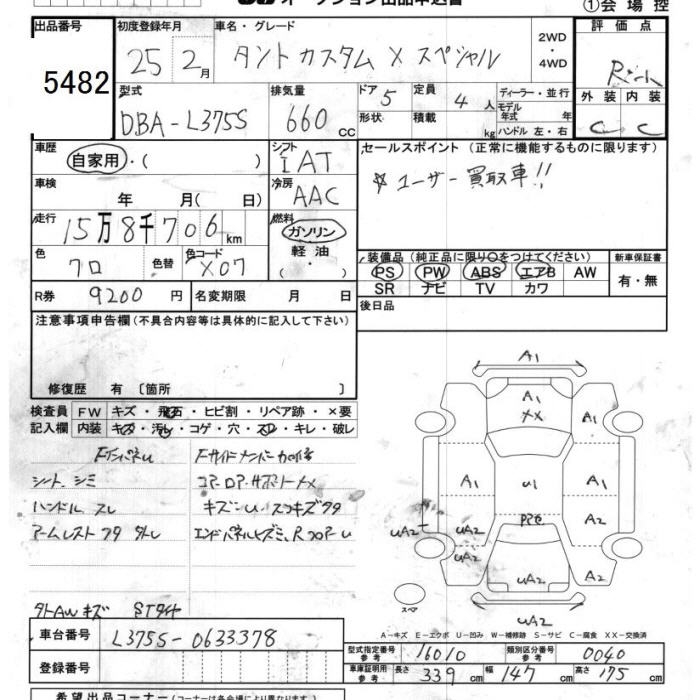 オークション出品申込書
①会場控
出品番号 初度登録年月 車名・グレード 評価点
5482 25 2月 タント カスタム X スペシャル 2WD ・ 4WD
型式 排気量 ドア 5 定員 4人 ディーラー・並行 外装 内装
DBA-L375S 660 cc 形状 積載 kg モデル年式 年 ハンドル 左・右 C C
車歴 シフト セールスポイント (正常に機能するものに限ります)
自家用・( ) IAT ☆ユーザー買取車!!
車検 年 月( 日) 冷房 AAC
走行 15万8千706km 燃料 ガソリン 軽油 ・( )
色 クロ 色替 色コード X07
装備品 (純正品に限り○をつけてください) 新車保証書
PS PW ABS エアB AW 有・無
SR ナビ TV カワ
R券 9200円 名変期限 月 日 後日品
注意事項申告欄 (不具合内容等は具体的に記入して下さい)
修復歴 有 〔箇所 〕
検査員 FW キズ・飛石・ヒビ割・リペア跡・×要
記入欄 内装 キズ・汚レ・コゲ・穴・スレ・キレ・破レ
シート、シミ
ハンドル スレ
アームレスト フタ
キズ STタイヤ
A1
A1
XX
A1
A1
U1
A1
UA2
UA2
A2
UA2
UA2
A2
UA2
スペア
A-キズ E-エクボ U-凹み W-補修跡 S-サビ C-腐食 XX-交換済
車台番号 L375S-0633378
型式指定番号 参考 16010 類別区分番号 参考 0040
登録番号
車庫証明用 参考 長さ 339cm 幅 147cm 高さ 175cm
希望出品コーナー(コーナーは各会場により異なります)